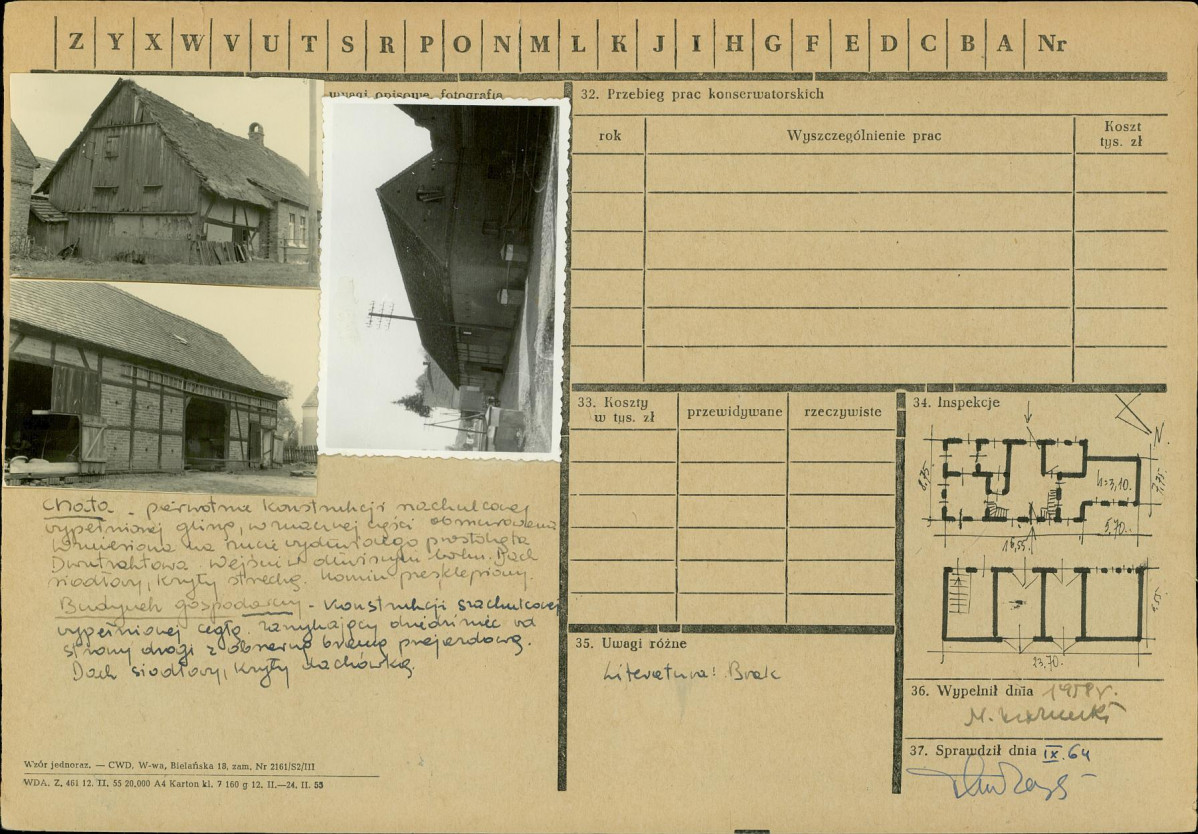 Z Y X W V U T S R P O N M L K J I H G F E D C B A Nr
uwagi opisowe, fotografia
Chata - pierwotnie konstrukcji szachulcowej
wypełnionej gliną, w znacznej części obmurowana
wzniesiona na rzucie wydłużonego prostokąta
Dwutraktowa. Wejście w dłuższym boku. Dach
siodłowy, kryty strzechą. Komin przesklepiony.
Budynek gospodarczy - konstrukcji szachulcowej
wypełnionej cegłą zamykający dziedziniec od
strony drogi z obszerną bramą przejazdową.
Dach siodłowy, kryty dachówką.
Wzór jednoraz. — CWD, W-wa, Bielańska 18, zam. Nr 2161/S2/III
WDA. Z. 461 12. II. 55 20,000 A4 Karton kl. 7 160 g 12. II.—24. II. 55
32. Przebieg prac konserwatorskich
rok
Wyszczególnienie prac
Koszt
tys. zł
33. Koszty
w tys. zł
przewidywane
rzeczywiste
34. Inspekcje
N
8,75
h=3,10.
7,75
5,70.
16,55
23,70.
5.55
35. Uwagi różne
Literatura: Brak
36. Wypełnił dnia 1958r.
37. Sprawdził dnia IX.64